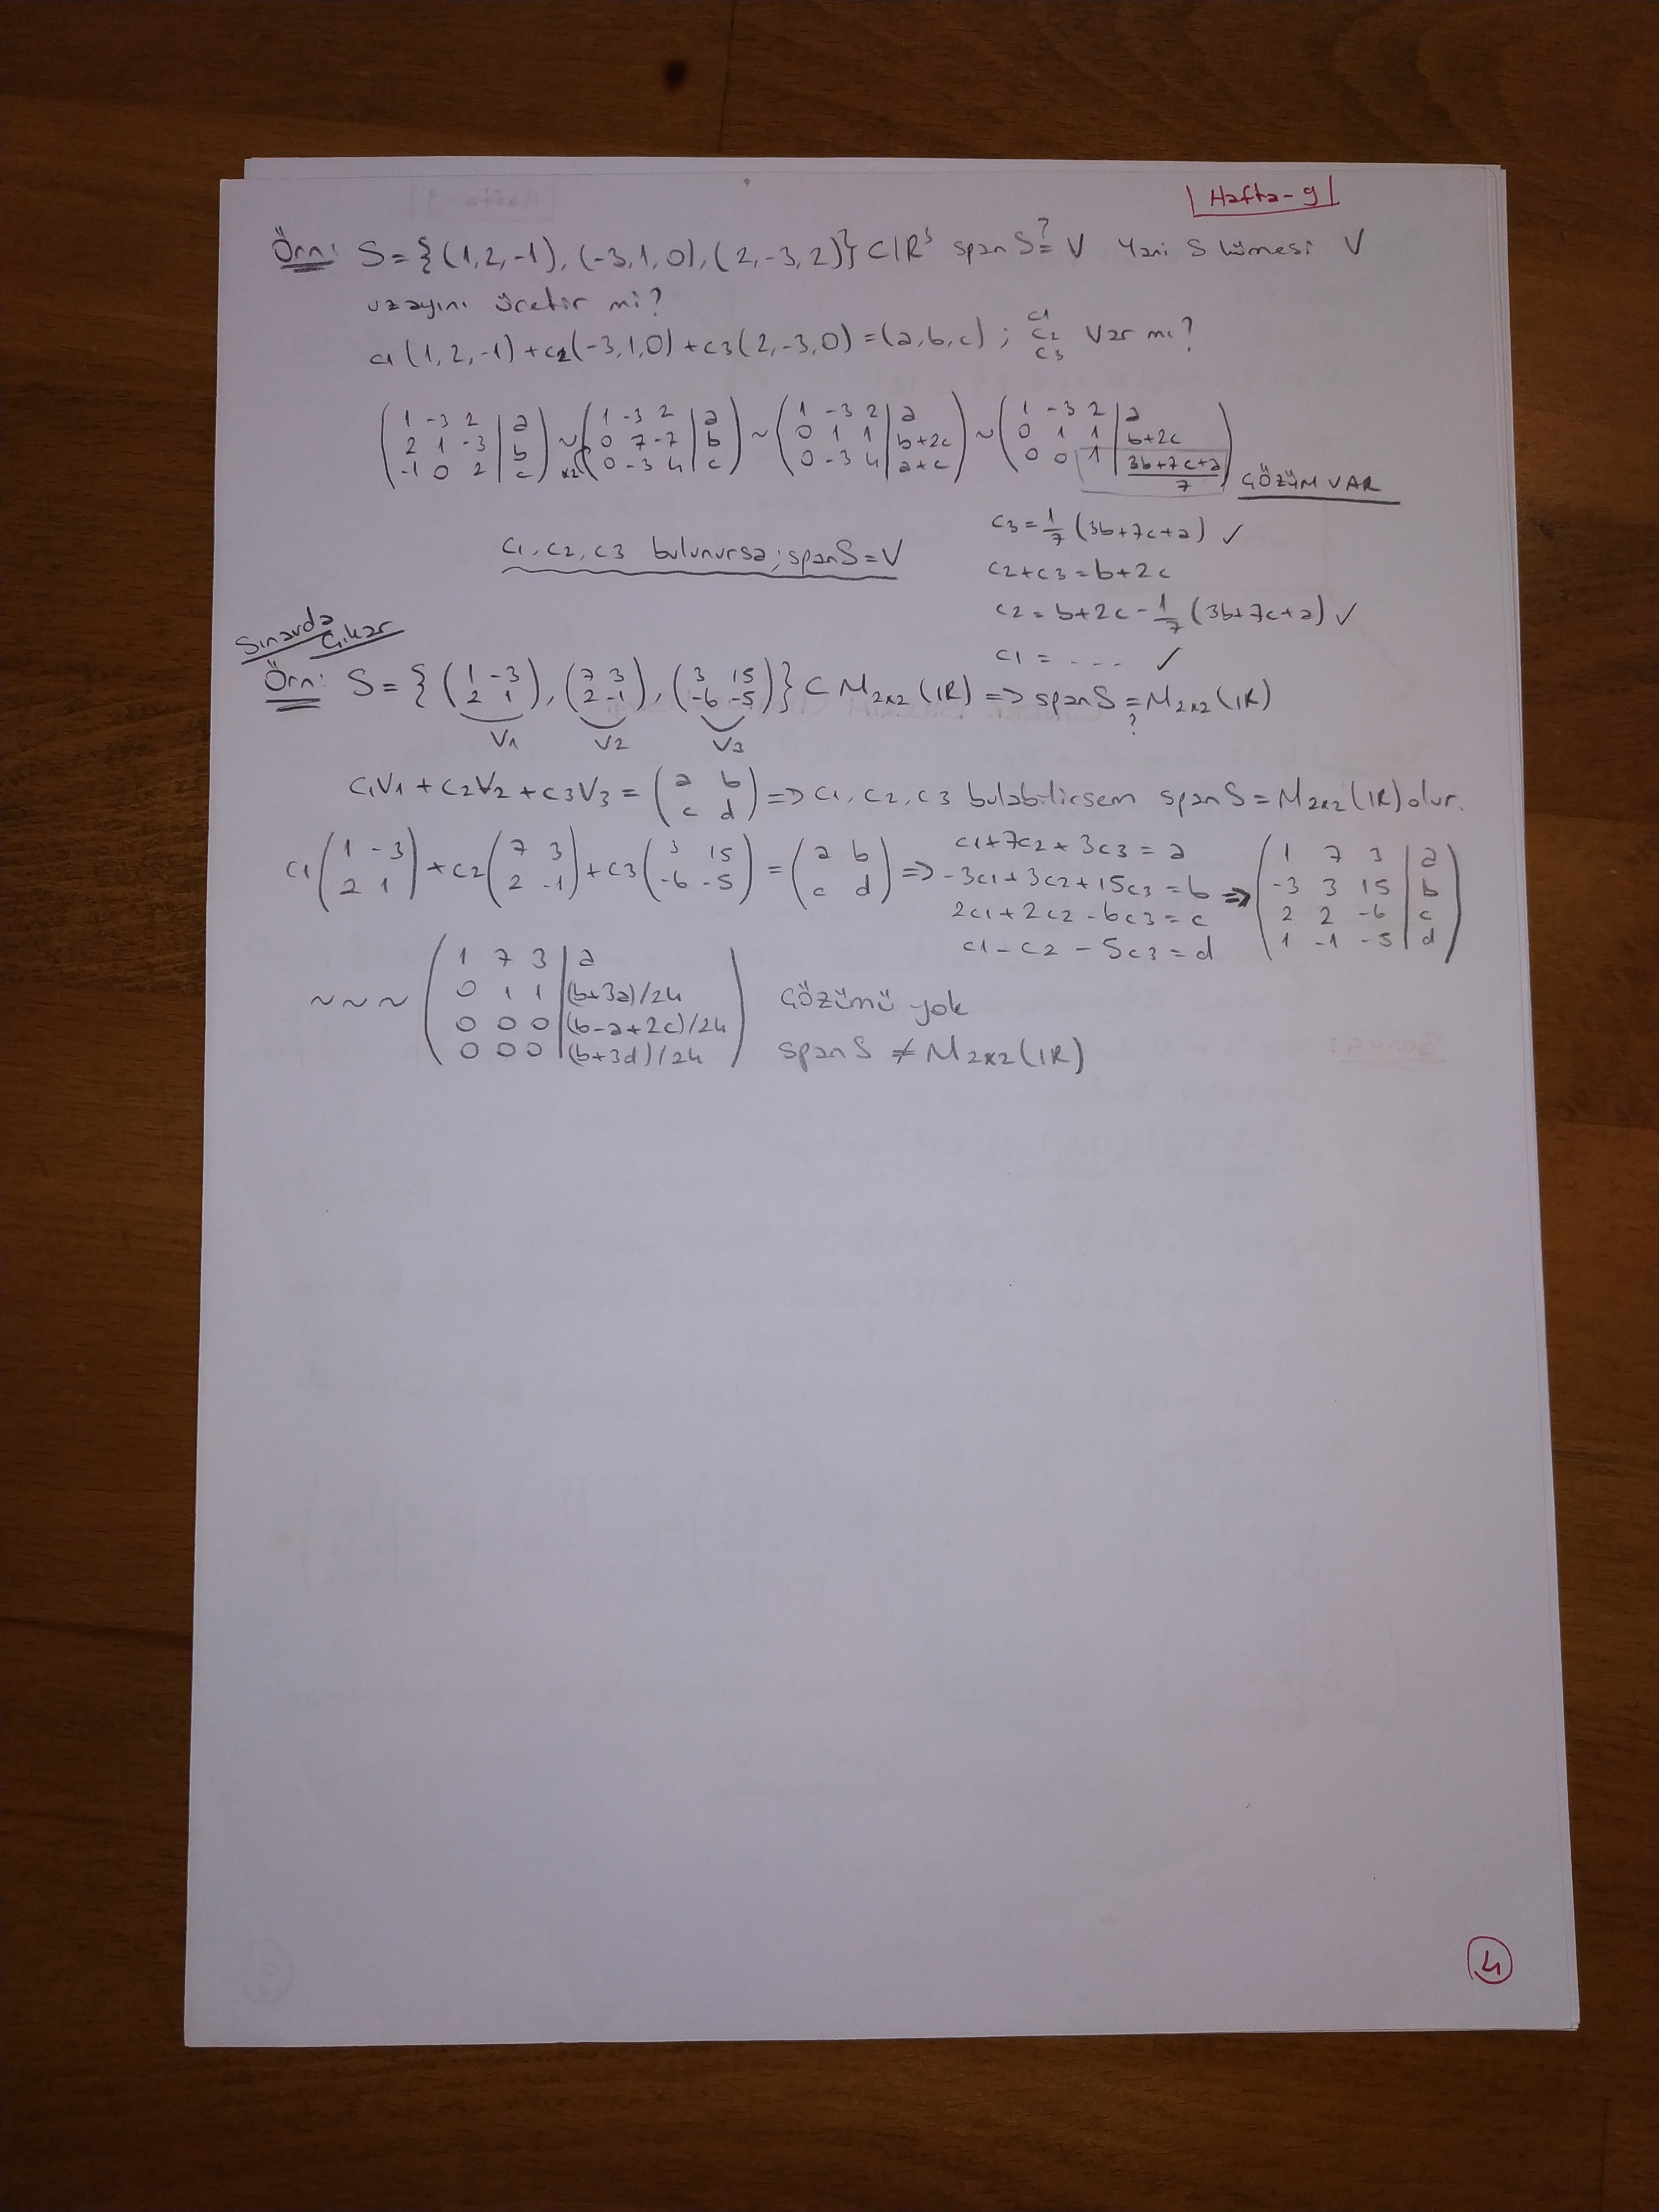 Hafta-9
Örn: S = {(1,2,-1), (-3,1,0), (2,-3,2)} ⊂ IR³ spanS ≟ V Yani S kümesi V
uzayını örter mi?
c1(1,2,-1)+c2(-3,1,0)+c3(2,-3,0)=(a,b,c) ; c1 c2 c3 Var mı?
(1 -3 2 | a
2 1 -3 | b
-1 0 2 | c) ~ x2 (1 -3 2 | a
0 7 -7 | b
0 -3 4 | c) ~ (1 -3 2 | a
0 1 1 | b+2c
0 -3 4 | a+c) ~ (1 -3 2 | a
0 1 1 | b+2c
0 0 1 | 3b+7c+a / 7) ÇÖZÜM VAR
c1, c2, c3 bulunursa; spanS=V
c3 = 1/7 (3b+7c+a) ✓
c2+c3 = b+2c
c2 = b+2c - 1/7 (3b+7c+a) ✓
c1 = .... ✓
Sınavda Çıkar
Örn: S = {(1 -3
2 1), (7 3
2 -1), (3 15
-6 -5)} ⊂ M2x2(IR) => spanS ≟ M2x2(IR)
V1 V2 V3
c1V1 + c2V2 + c3V3 = (a b
c d) => c1, c2, c3 bulabilirsem spanS = M2x2(IR) olur.
c1(1 -3
2 1) + c2(7 3
2 -1) + c3(3 15
-6 -5) = (a b
c d) => c1+7c2+3c3 = a
-3c1+3c2+15c3 = b
2c1+2c2-6c3 = c
c1-c2-5c3 = d
=> (1 7 3 | a
-3 3 15 | b
2 2 -6 | c
1 -1 -5 | d)
~~~ (1 7 3 | a
0 1 1 | (b+3a)/24
0 0 0 | (b-a+2c)/24
0 0 0 | (b+3d)/24)
Çözümü yok
spanS ≠ M2x2(IR)
4